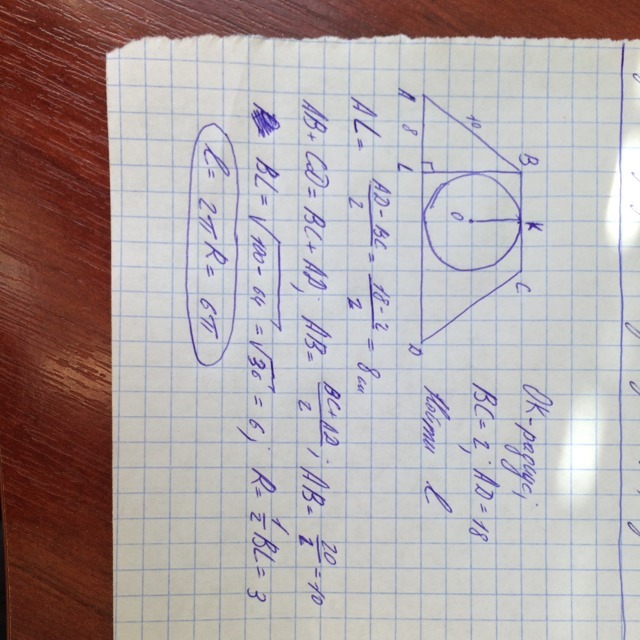 A 8 L D
10
B K C
O
OK-радиус;
BC=2; AD=18
Найти ℓ
AL = (AD-BC)/2 = (18-2)/2 = 8 см
AB+CD=BC+AD; AB= (BC+AD)/2; AB= 20/2 =10
BL=√(100-64) =√36 = 6; R= 1/2 BL=3
ℓ= 2πR= 6π